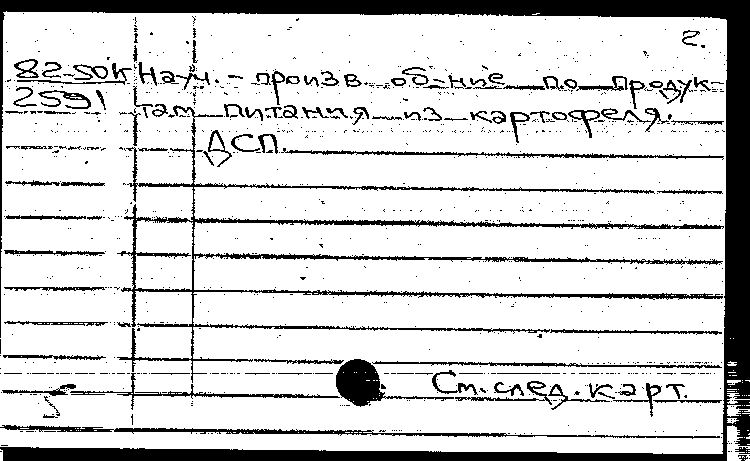 2.
82-50К Науч.-произв. об-ние по продук-
2591 там питания из картофеля.
ДСП.
См. след. карт.
5